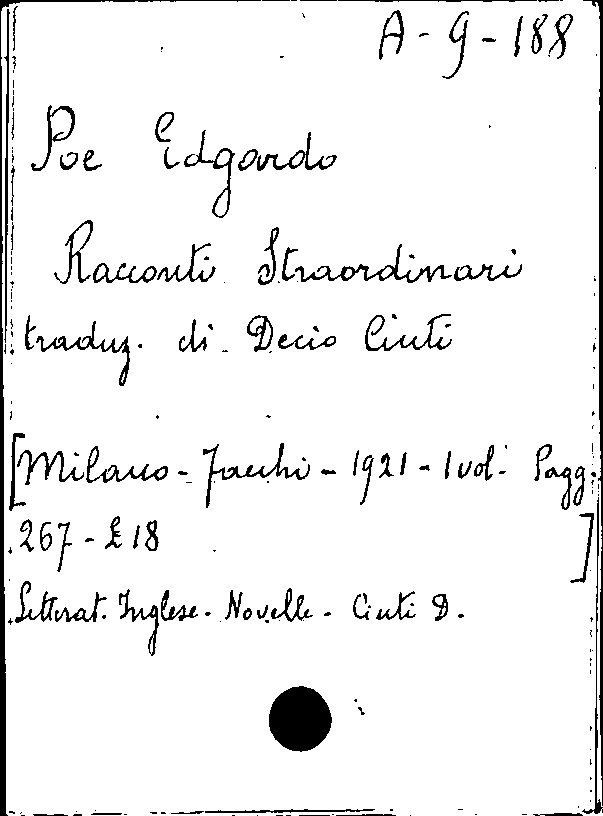 A-9-188
Poe Edgardo
Racconti Straordinari
traduz. di Decio Cinti
[Milano - Facchi - 1921 - 1 vol. Pagg.
267 - £ 18 ]
Letterat. Inglese - Novelle - Cinti D.